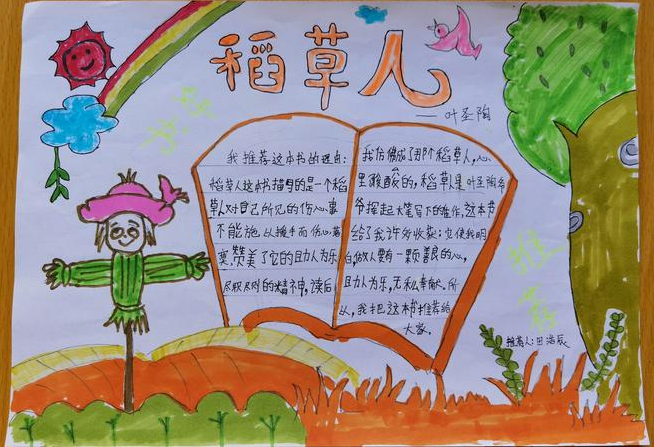 稻草人
——叶圣陶
我推荐这本书的理由:
稻草人这本书描写的是一个稻
草人对自己所见的伤心事
不能施以援手而伤心
赞美了它的助人为乐
尽职尽责的精神,读后
我仿佛成了那个稻草人,心
里酸酸的,稻草人是叶圣陶爷
爷挥起大笔写下的佳作,这本书
给了我许多收获:它使我明
白,做人要有一颗善良的心,
助人为乐,无私奉献。所
以,我把这本书推荐给
大家。
推荐
推荐人:田